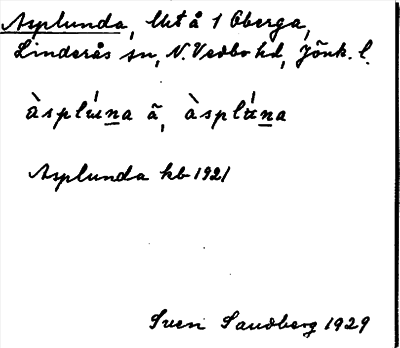 Asplunda, lht å 1 Oberga,
Linderås sn, N. Vedbo hd, Jönk. l.
àsplúna ã, àsplúna
Asplunda kb 1921
Sven Sandberg 1929